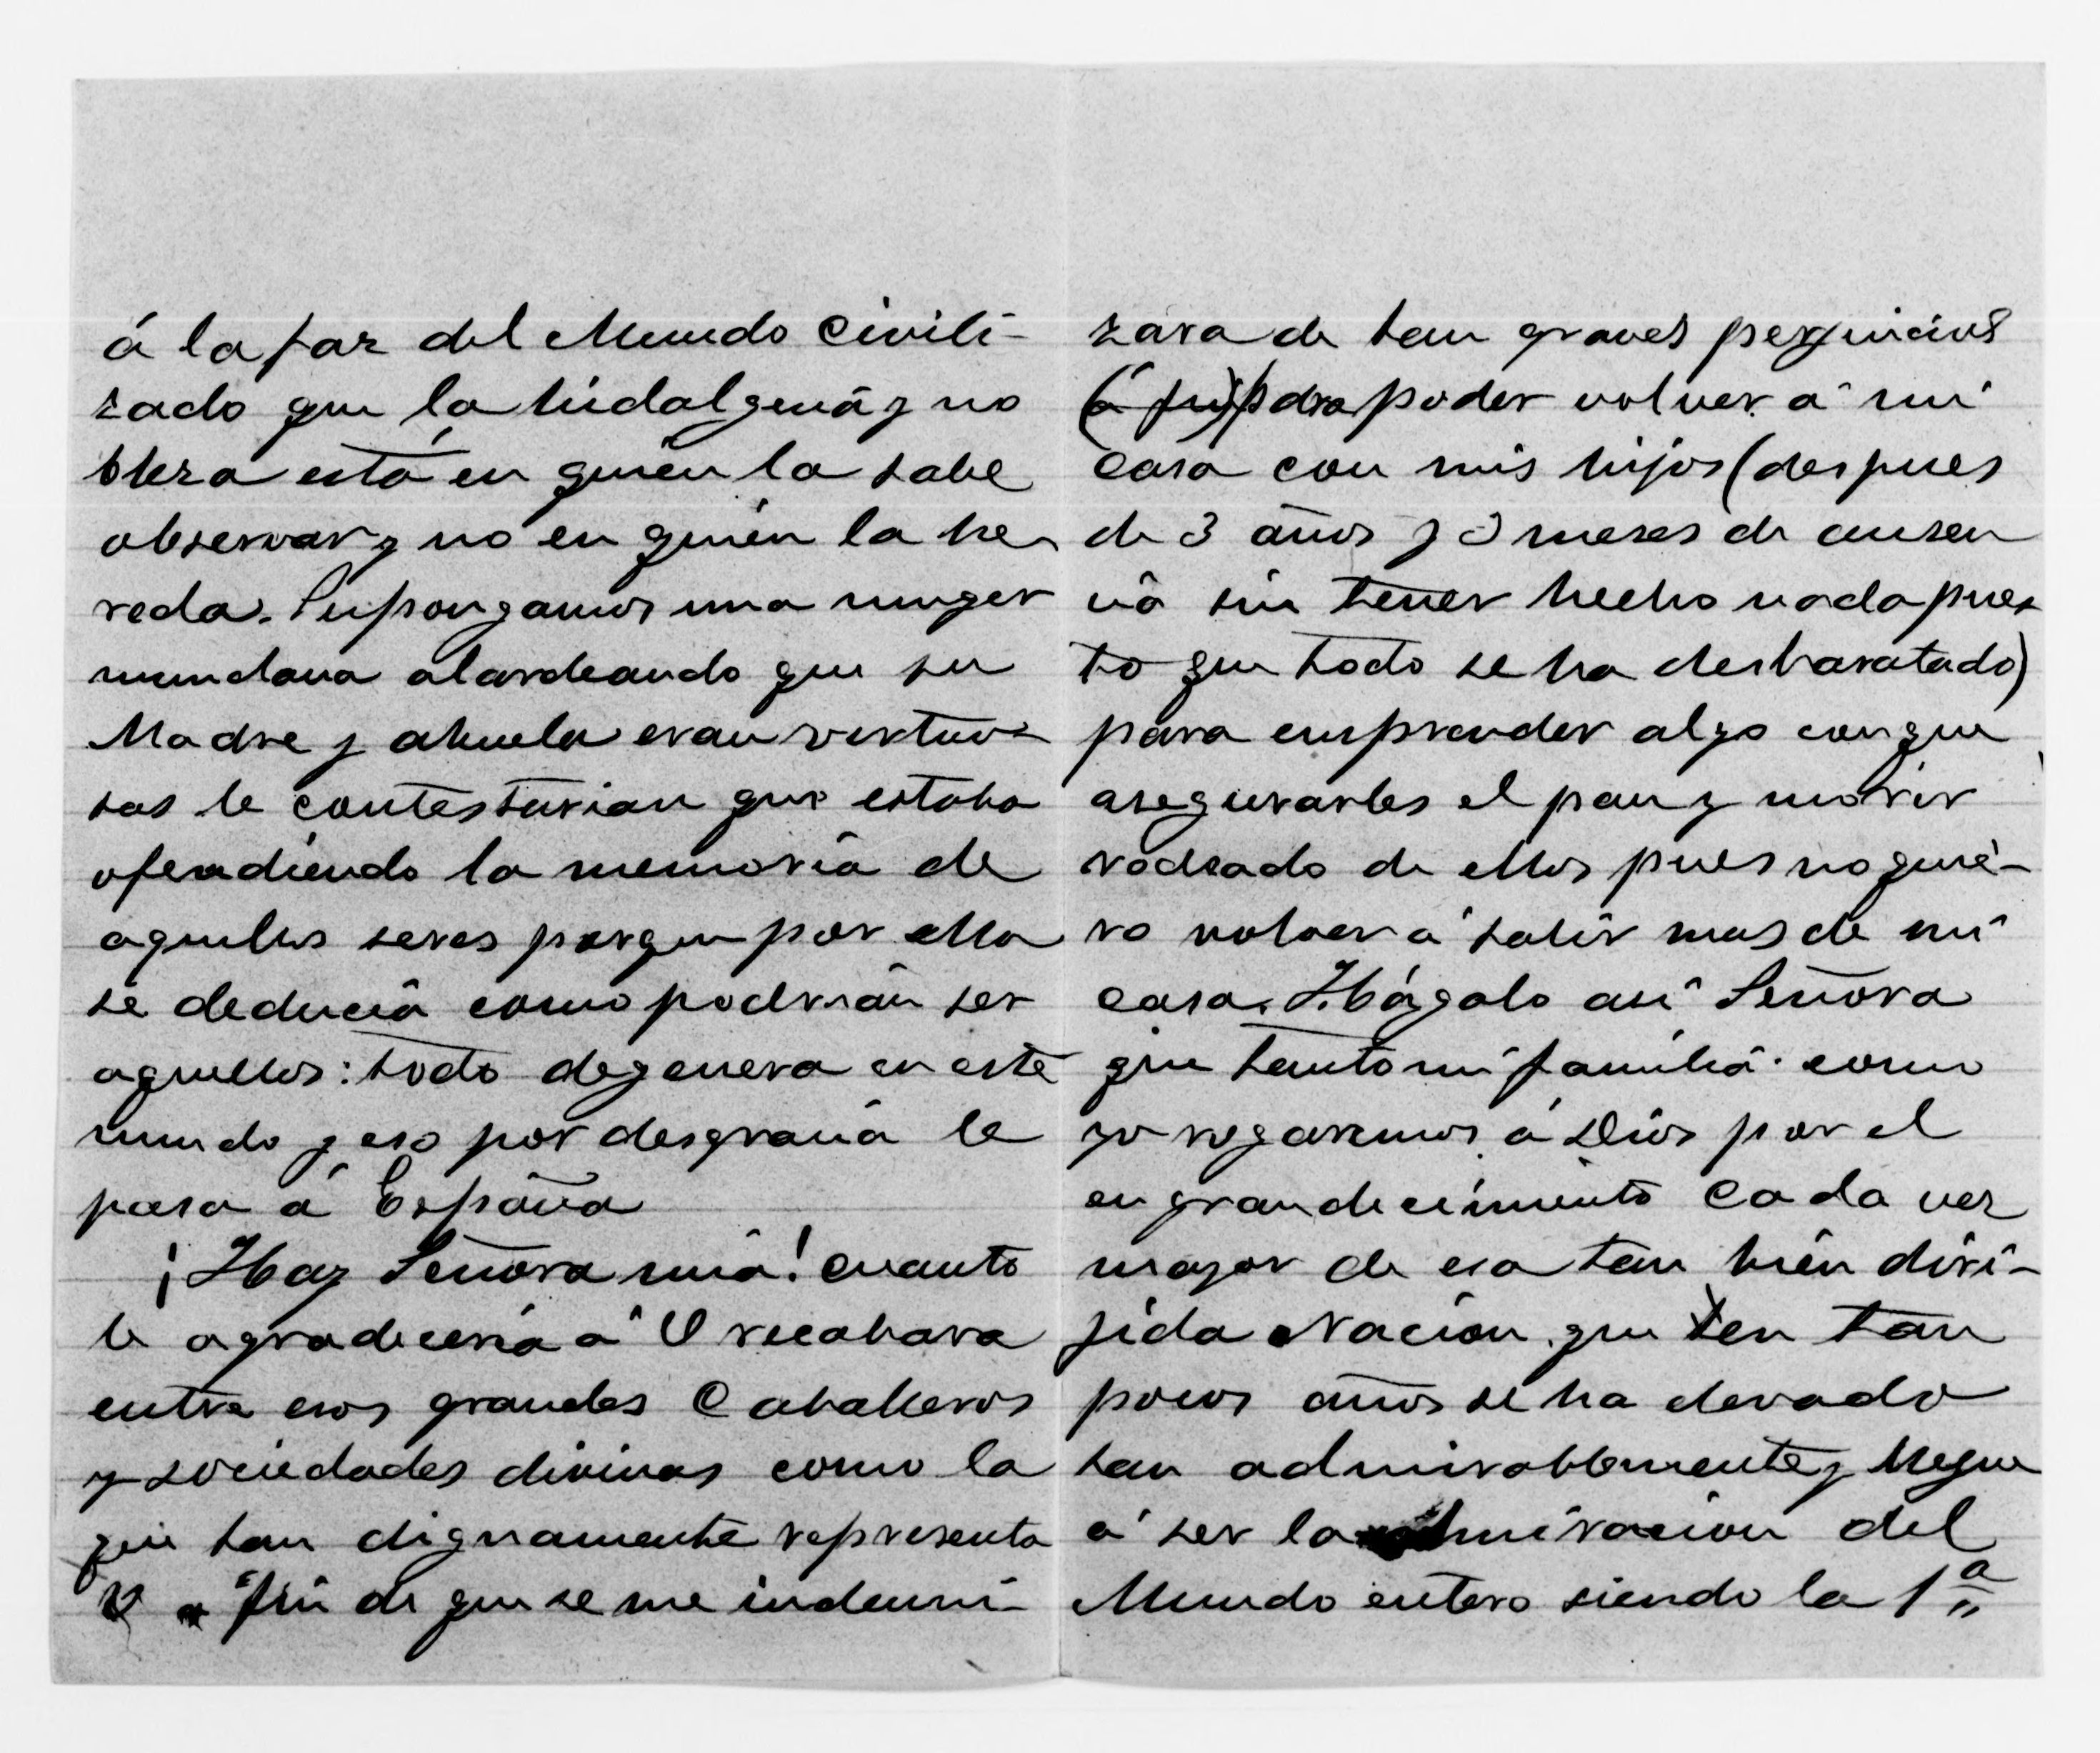 á la faz del Mundo Civili-
zado que la hidalguiá y no
bleza está en quién la sabe
observar y no en quién la he-
reda. Supongamos una muger
mundana alardeando que su
Madre y abuela eran virtuo-
sas le contestarian que estaba
ofendiendo la memoria de
aquellos seres porque por ella
se deduciá como podrián ser
aquellos: todo degenera en este
mundo y eso por desgracia le
pasa á España
¡Hay Señora miá! cuanto
le agradeceriá á V recabara
entre esos grandes Caballeros
y sociedades divinas como la
que tan dignamente representa
V á fin de que se me indemni-
zara de tan graves perjuicios
(á fin) para poder volver á mi
casa con mis hijos (despues
de 3 años y 3 meses de ausen
cia sin tener hecho nada pues-
to que todo se ha desbaratado)
para emprender algo conque
asegurarles el pan y morir
rodeado de ellos pues no quie-
ro volver á salir mas de mi
casa. Hágalo asi Señora
que tanto mi familia como
yo rogaremos á Dios por el
engrandecimiento Cada vez
mayor de esa tan bién diri-
jida Nacion que en tan
pocos años se ha elevado
tan admirablemente y llegue
á ser la admiracion del
Mundo entero siendo la 1ª